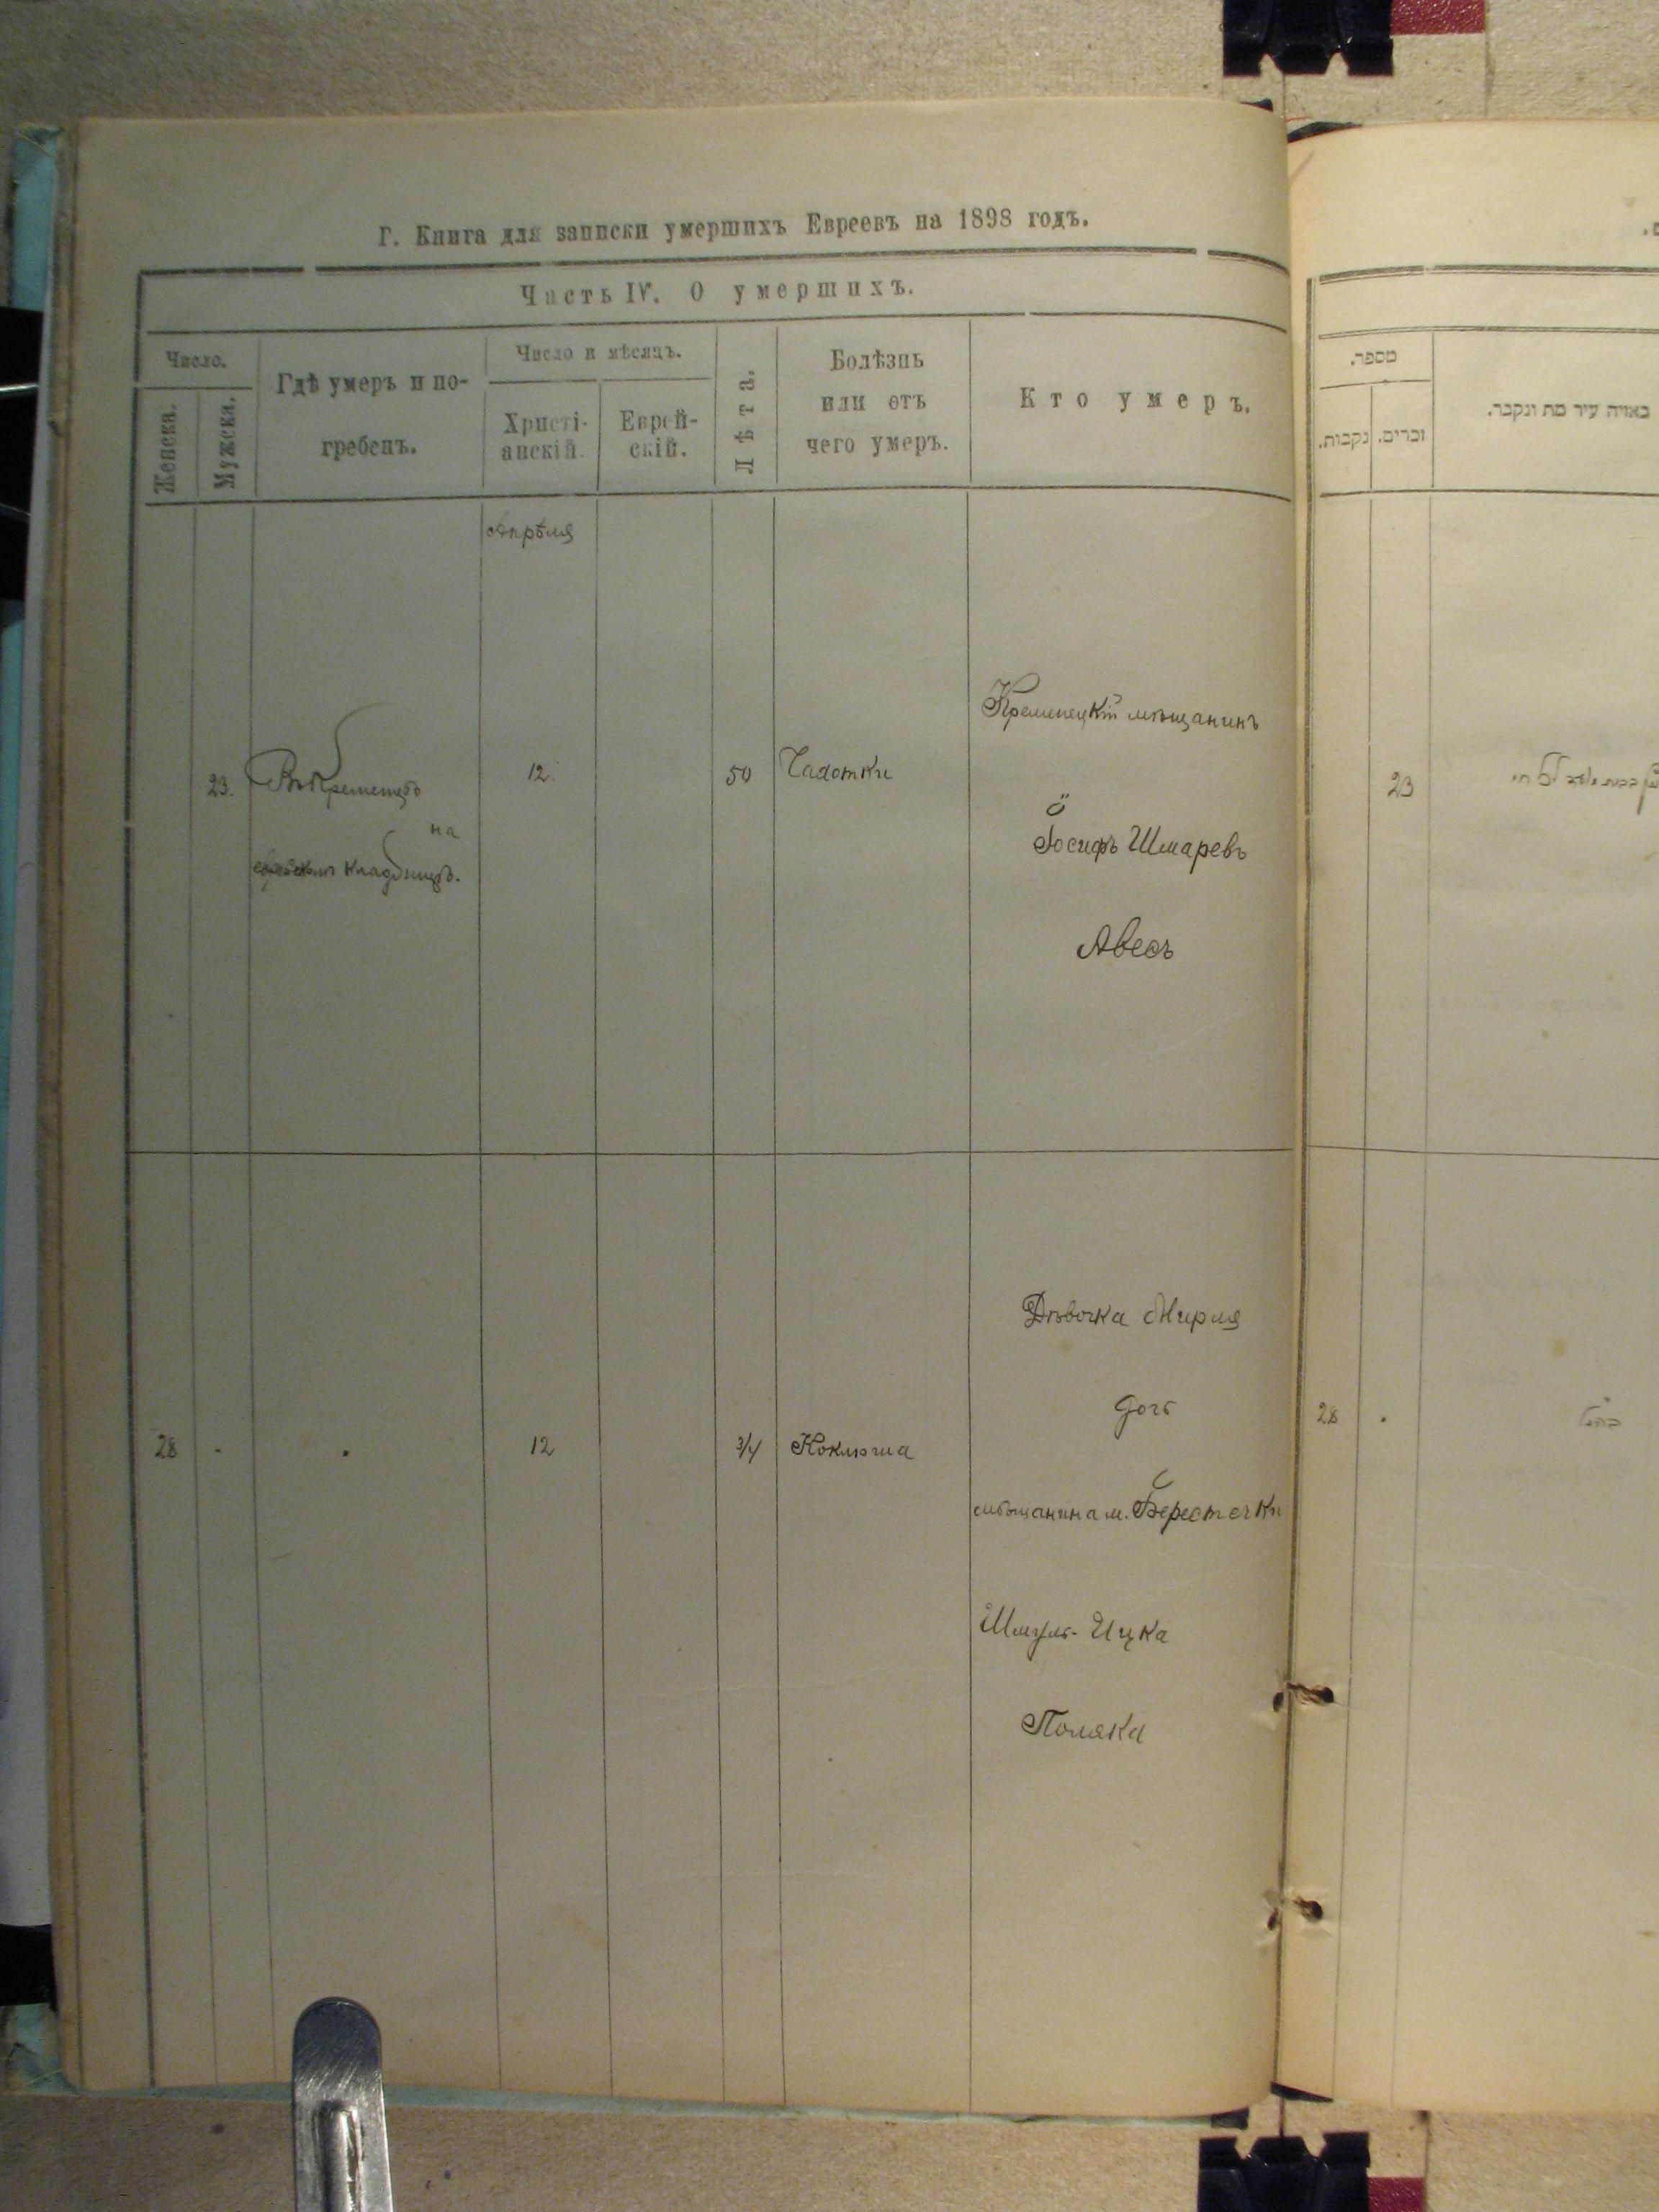 Г. Книга для записки умершихъ Евреевъ на 1898 годъ.
Часть IV. О умершихъ.
Число.
Женска.
Мужска.
Гдѣ умеръ и по-
гребенъ.
Число и мѣсяцъ.
Христі-
анскій.
Еврей-
скій.
Лѣта.
Болѣзнь
или отъ
чего умеръ.
Кто умеръ.
מספר.
נקבות.
זכרים.
באיזה עיר מת ונקבר.
Апрѣля
23.
Въ Кременцѣ
на
кладбищѣ.
12.
50
Чахотки
Кременецкій мѣщанинъ
Іосифъ Шмаревъ
Авесъ
23
28
12
3/4
Коклюша
Дѣвочка Мирля
дочь
мѣщанина м. Берестечки
Шмуль-Ицка
Поляка
28